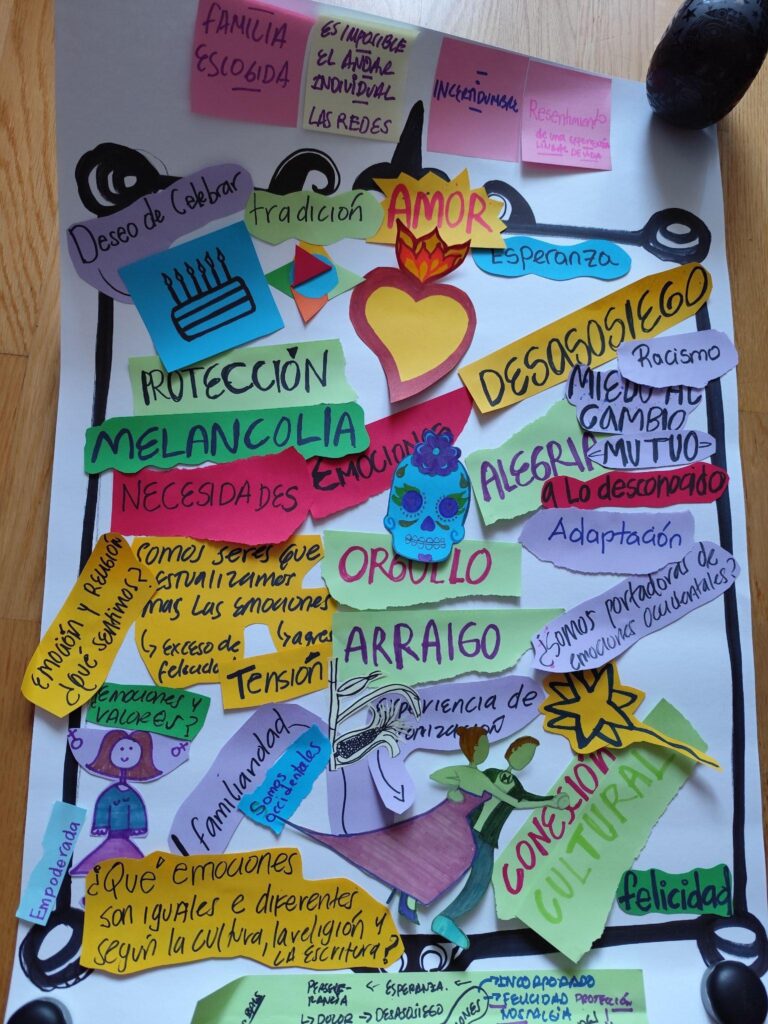 FAMILIA
ESCOGIDA
ES IMPOSIBLE
EL ANDAR
INDIVIDUAL
LAS REDES
INCERTIDUMBRE
Resentimiento
de una
LINEAL DE VIDA
Deseo de Celebrar
tradición
AMOR
Esperanza
DESASOSIEGO
Racismo
PROTECCIÓN
MIEDO AL
CAMBIO
MELANCOLIA
EMOCIONES
ALEGRIA
<MUTUO>
NECESIDADES
a Lo desconocido
Adaptación
ORGULLO
EMOCIÓN Y RELIGIÓN
¿QUÉ SENTIMOS?
SOMOS SERES QUE
MAS LAS EMOCIONES
↳ EXCESO DE
felicidad
ARRAIGO
¿Somos portadoras de
emociones occidentales?
TENSIÓN
¿EMOCIONES Y
VALORES?
familiaridad
Somos
occidentales
CONEXIÓN
CULTURAL
Empoderada
felicidad
¿QUÉ EMOCIONES
SON IGUALES E DIFERENTES
SEGÚN LA CULTURA, LA RELIGIÓN Y
LA ESCRITURA?
PERSEVE-
RANCIA
← ESPERANZA.
INCORPORADO
↳ DOLOR → DESASOSIEGO
→ FELICIDAD PROTECCIÓN
NOSTALGIA